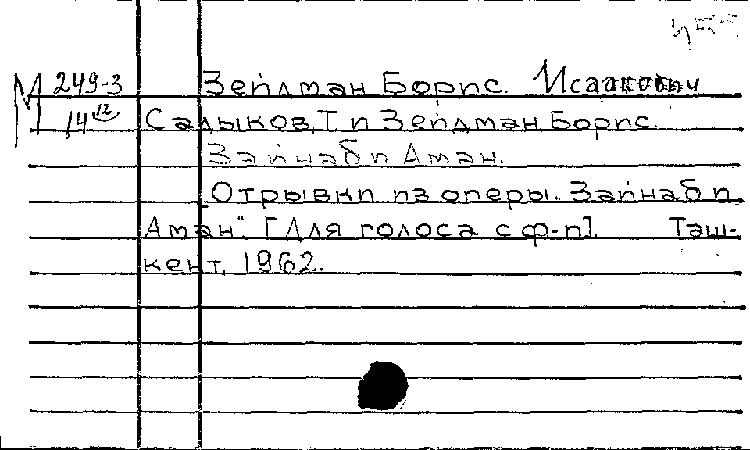 М 249-3 Зейдман Борис Исаакович
14 12 Садыков, Т и Зейдман Борис.
Зайнаб и Аман.
Отрывки из оперы. Зайнаб и
Аман". [Для голоса с ф-п]. Таш-
кент, 1962.